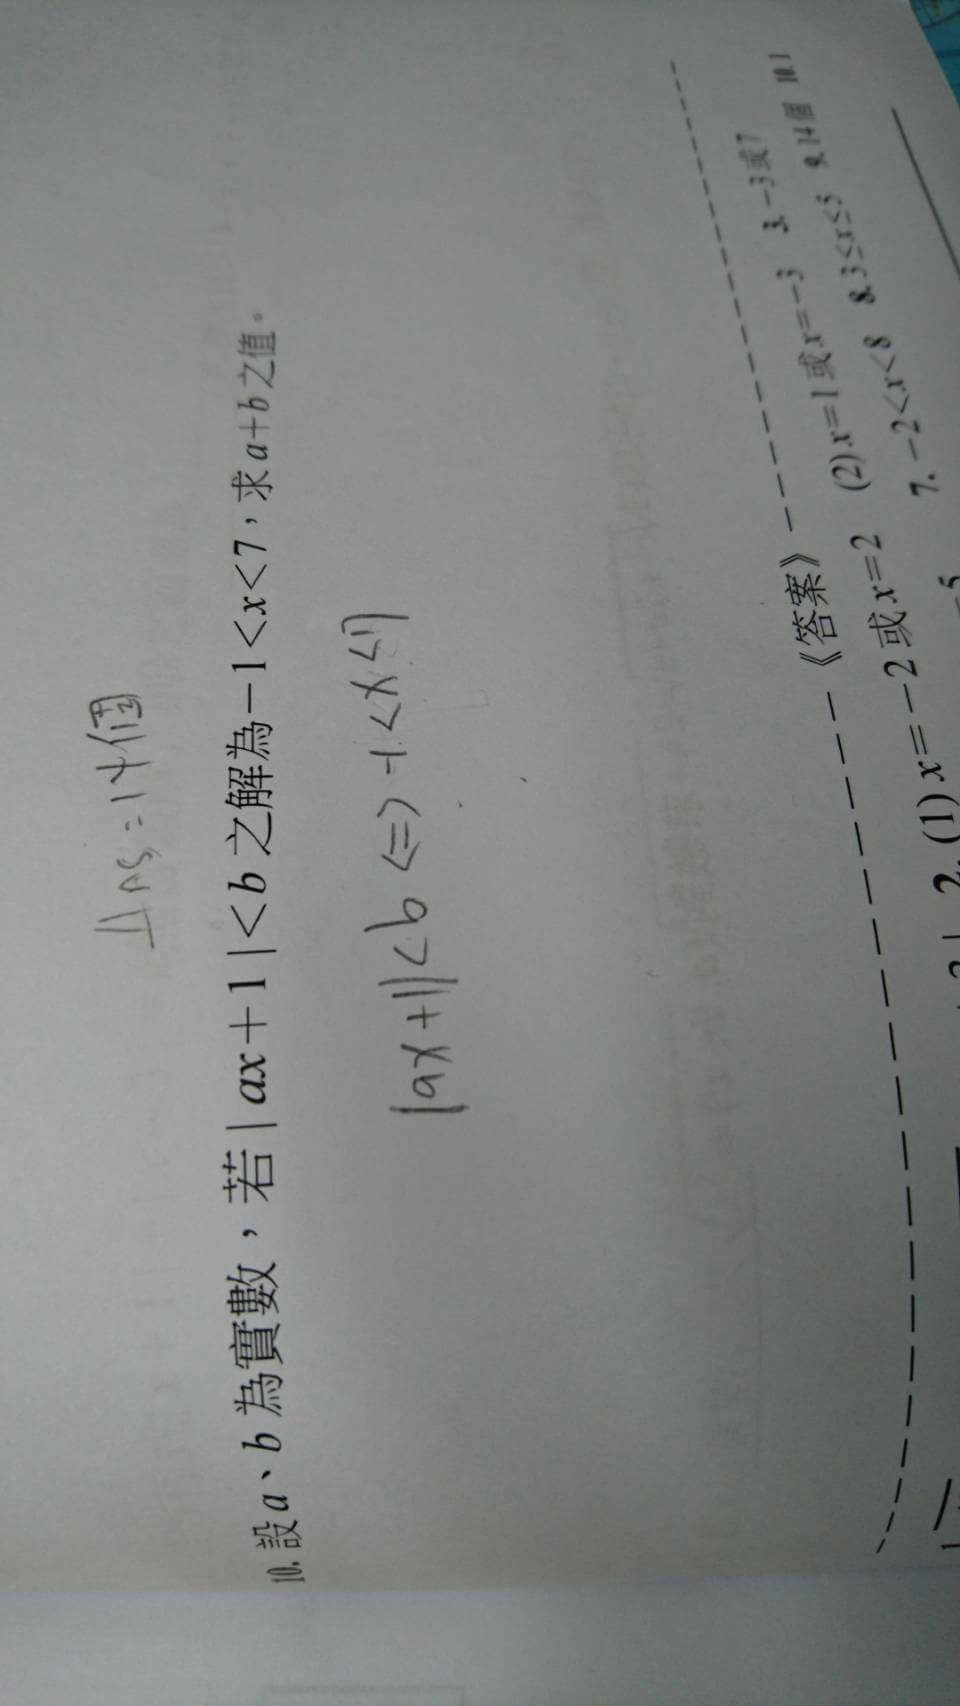 Ans = 14個
10. 設a、b為實數，若|ax+1|<b之解為-1<x<7，求a+b之值。
|ax+1|<b <=> -1<x<7
《答案》
2. (1)x=-2或x=2 (2)x=1或x=-3 3. -3或7
7. -2<x<8 8. 3≤x≤5 9. 14個 10. 1